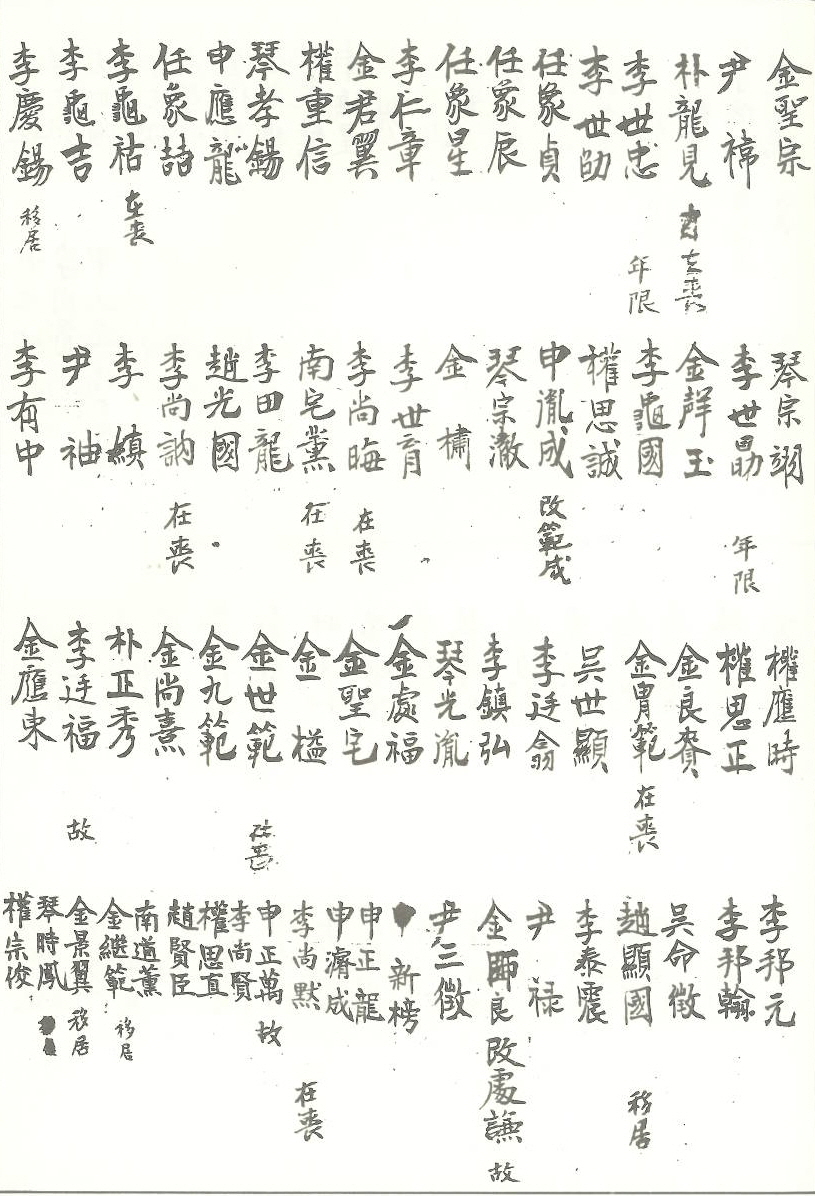 金聖宗
尹褘
朴龍見 在喪
李世忠 年限
李世劻
任象貞
任象辰
任象星
李仁章
金君翼
權重信
琴孝錫
申應龍
任象喆
李龜祜 在喪
李龜吉
李慶錫 移居
琴宗翊
李世勗 年限
金聲玉
李龜國
權思誠
申胤成 改範成
琴宗澈
金橚
李世育
李尚晦 在喪
南宅薰 在喪
李田龍
趙光國
李尚訥 在喪
李縝
尹䄂
李有中
權應時
權思正
金良賚
金胄範 在喪
吳世顯
李廷翕
李鎮弘
琴光胤
金處福
金聖宅
金榏
金世範 在喪
金九範
金尚熹
朴正秀
李廷福 故
金應東
李邦元
李邦翰
吳命徵
趙顯國 移居
李泰震
尹祿
金師良 改處謙 故
尹三徵
新榜
申正龍
申濬成
李尚默 在喪
申正萬 故
李尚賢
權思直
趙賢臣
南道薰
金継範 移居
金景翼 移居
琴時鳳
權宗俊